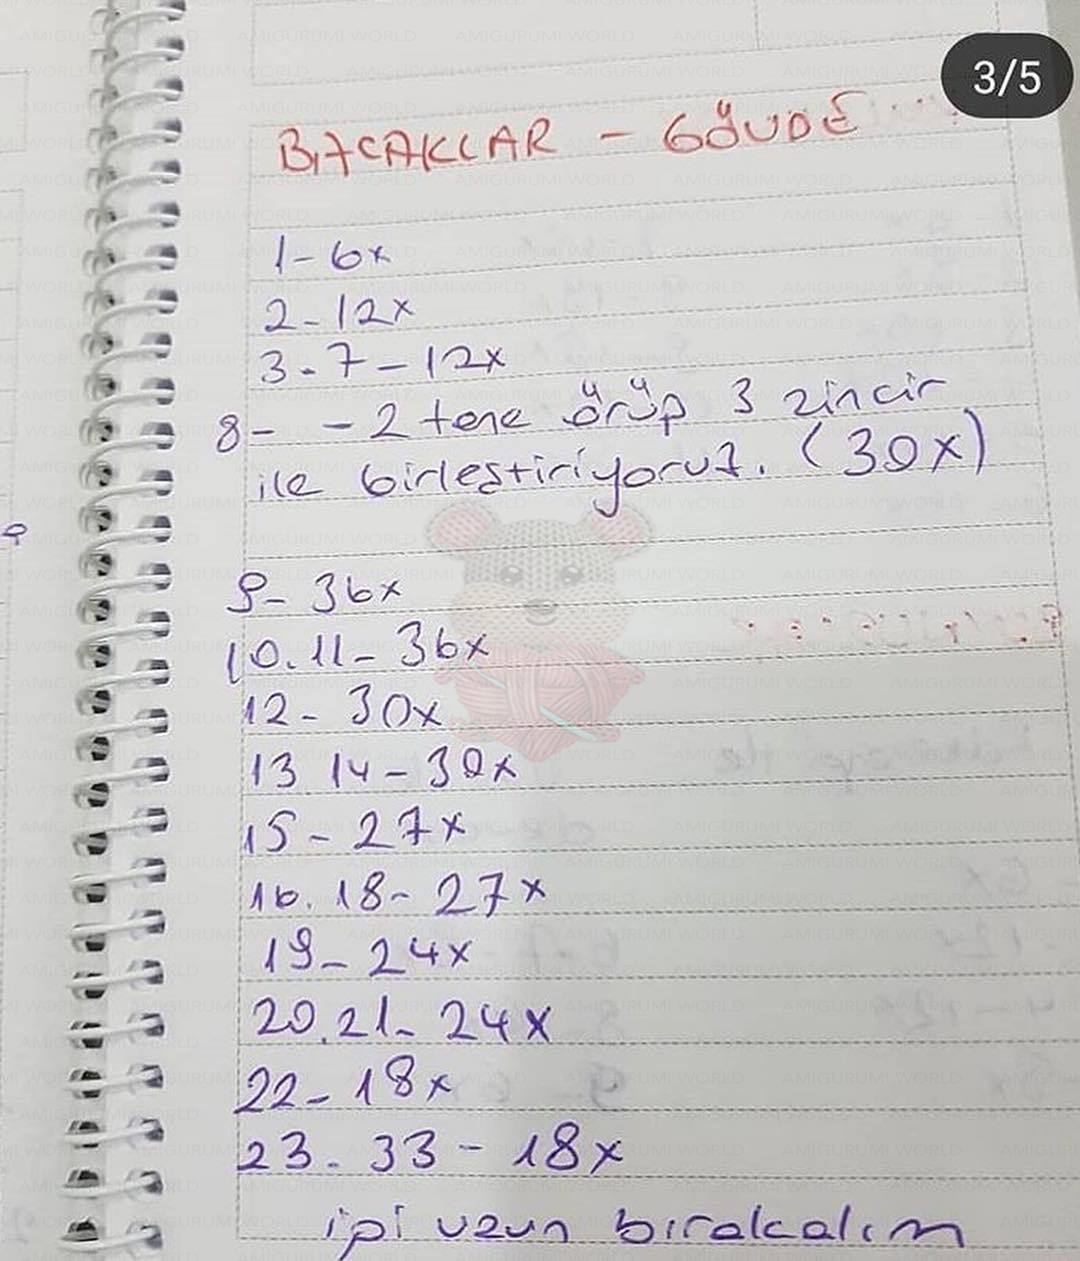 3/5
BACAKLAR - GÖVDE
1- 6x
2- 12x
3-7 - 12x
8- - 2 tane örüp 3 zincir
ile birleştiriyoruz. (30x)
9- 36x
10.11- 36x
12- 30x
13 14 - 30x
15 - 27x
16. 18- 27x
19- 24x
20.21- 24x
22- 18x
23. 33 - 18x
ipi uzun bırakalım
AMIGURUMI WORLD